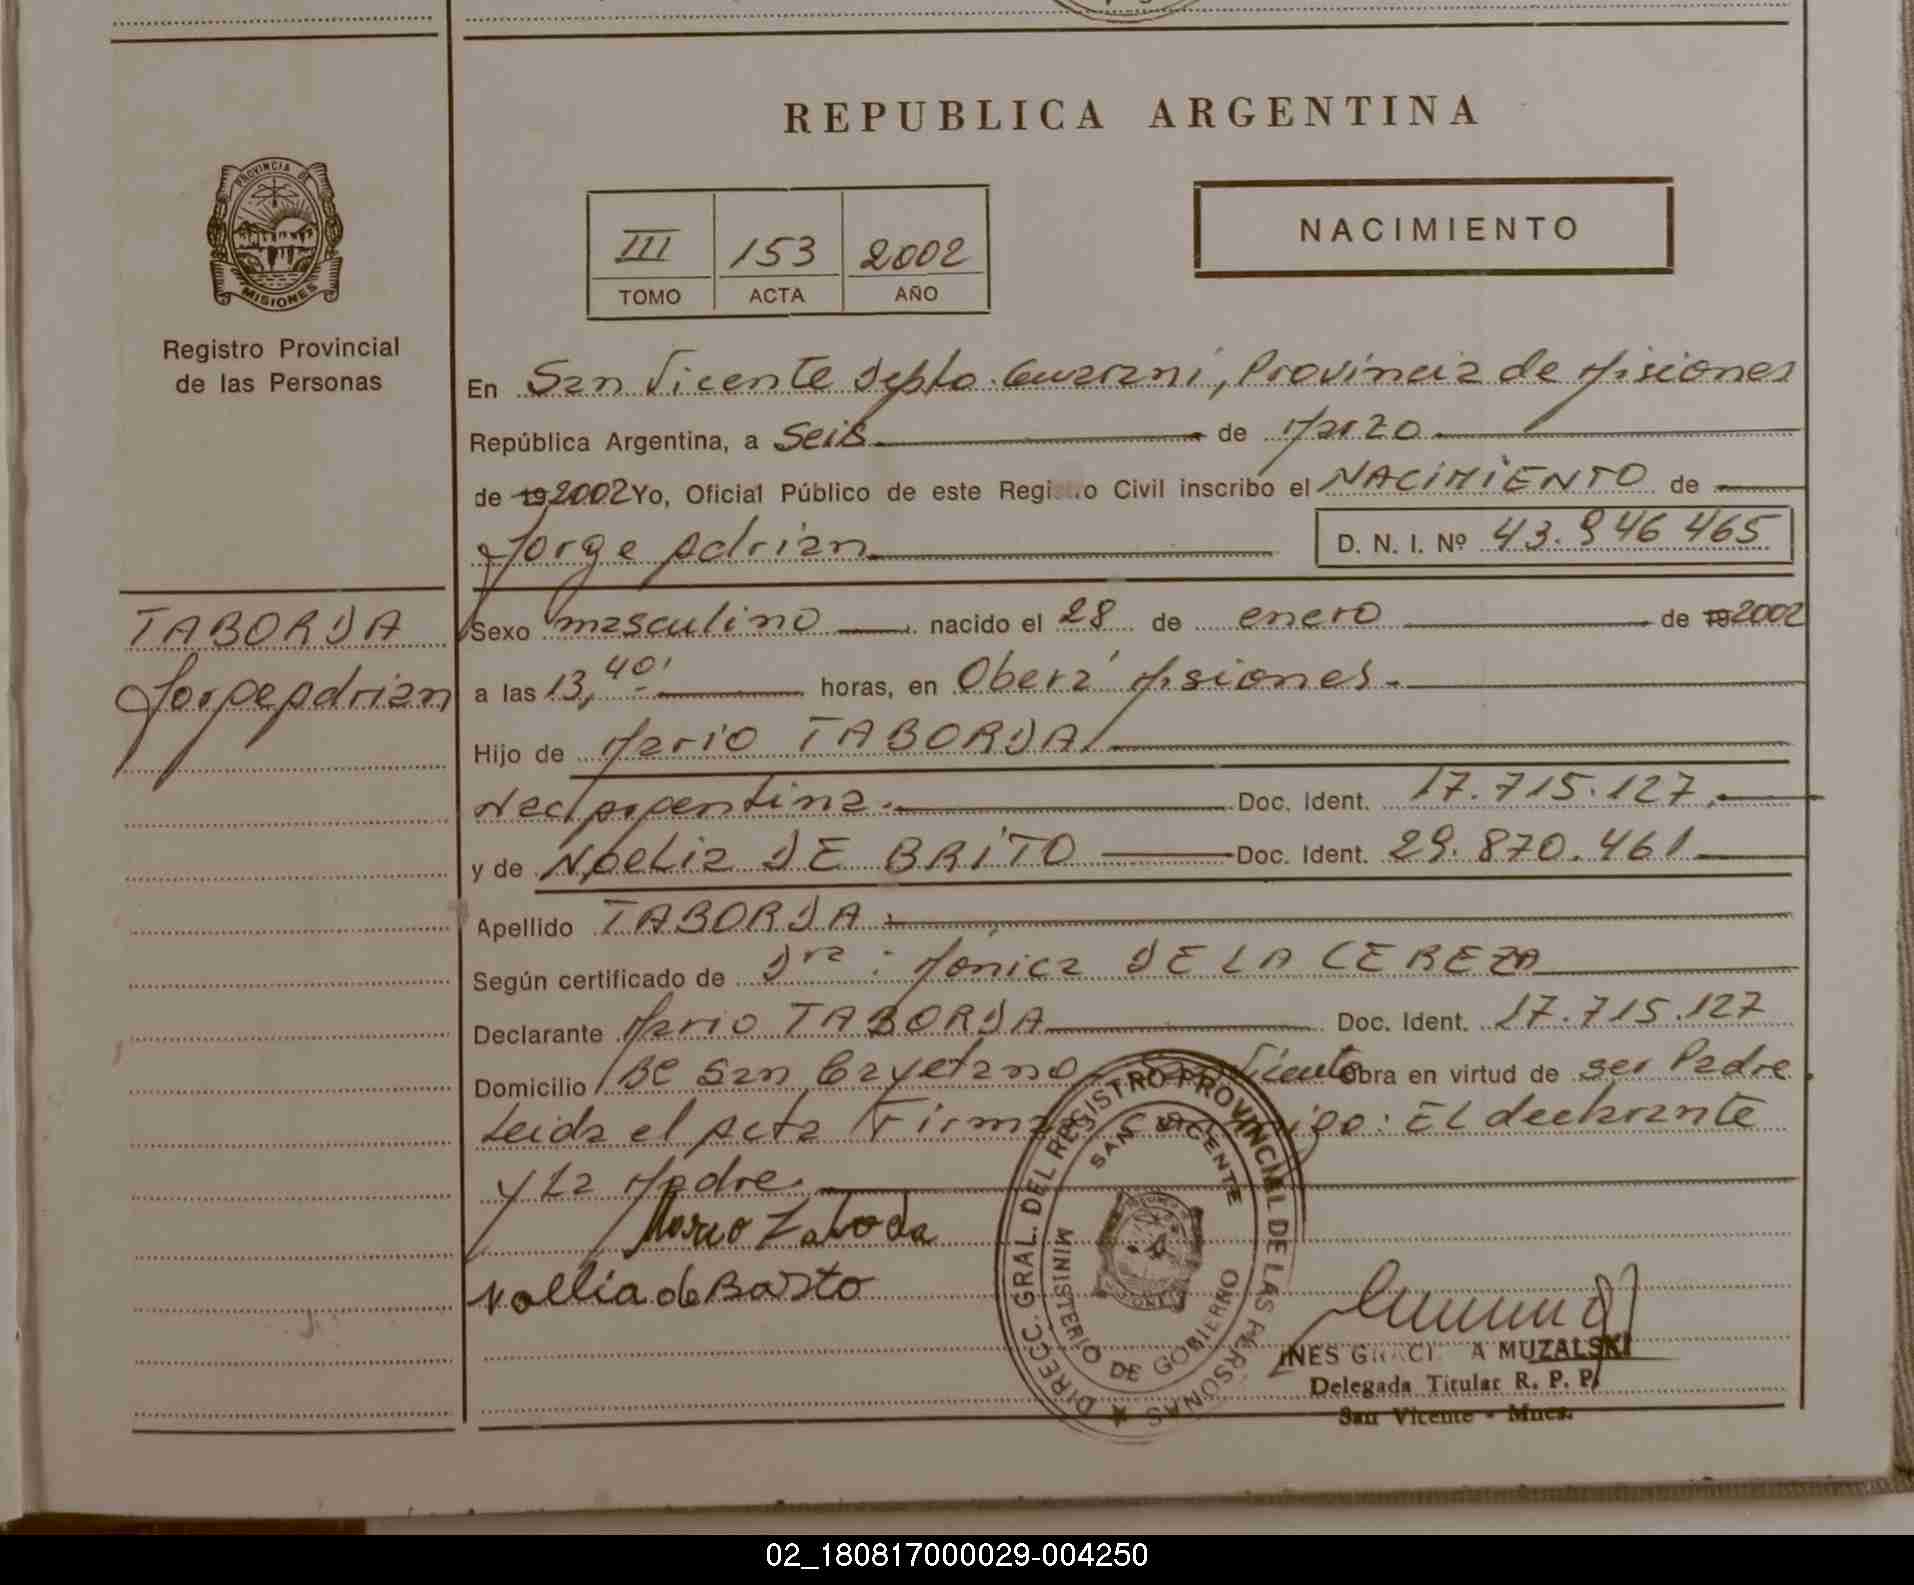 REPUBLICA ARGENTINA
PROVINCIA DE
MISIONES
Registro Provincial
de las Personas
III 153 2002
TOMO ACTA AÑO
NACIMIENTO
En San Vicente Depto. Guarani, Provincia de Misiones
República Argentina, a Seis de Marzo
de 19 2002 Yo, Oficial Público de este Registro Civil inscribo el NACIMIENTO de
Jorge Adrian D. N. I. Nº 43.946 465
TABORDA
Jorge Adrian
Sexo masculino nacido el 28 de enero de 19 2002
a las 13,40' horas, en Oberá Misiones.
Hijo de Mario TABORDA
Nac Argentina. Doc. Ident. 17.715.127.
y de Noelia DE BRITO Doc. Ident. 29.870.461
Apellido TABORDA
Según certificado de Dra: Mónica DE LA CEREZA
Declarante Mario TABORDA Doc. Ident. 17.715.127
Domicilio Bº San Cayetano San Vicente Obra en virtud de ser Padre.
Leida el Acta Firma : EL declarante
y La Madre.
Mario Taboda
Nollia de Barito
DIRECC. GRAL. DEL REGISTRO PROVINCIAL DE LAS PERSONAS
SAN VICENTE
MINISTERIO DE GOBIERNO
INES GRACIELA MUZALSKI
Delegada Titular R. P. P.
San Vicente - Mnes.
02_180817000029-004250